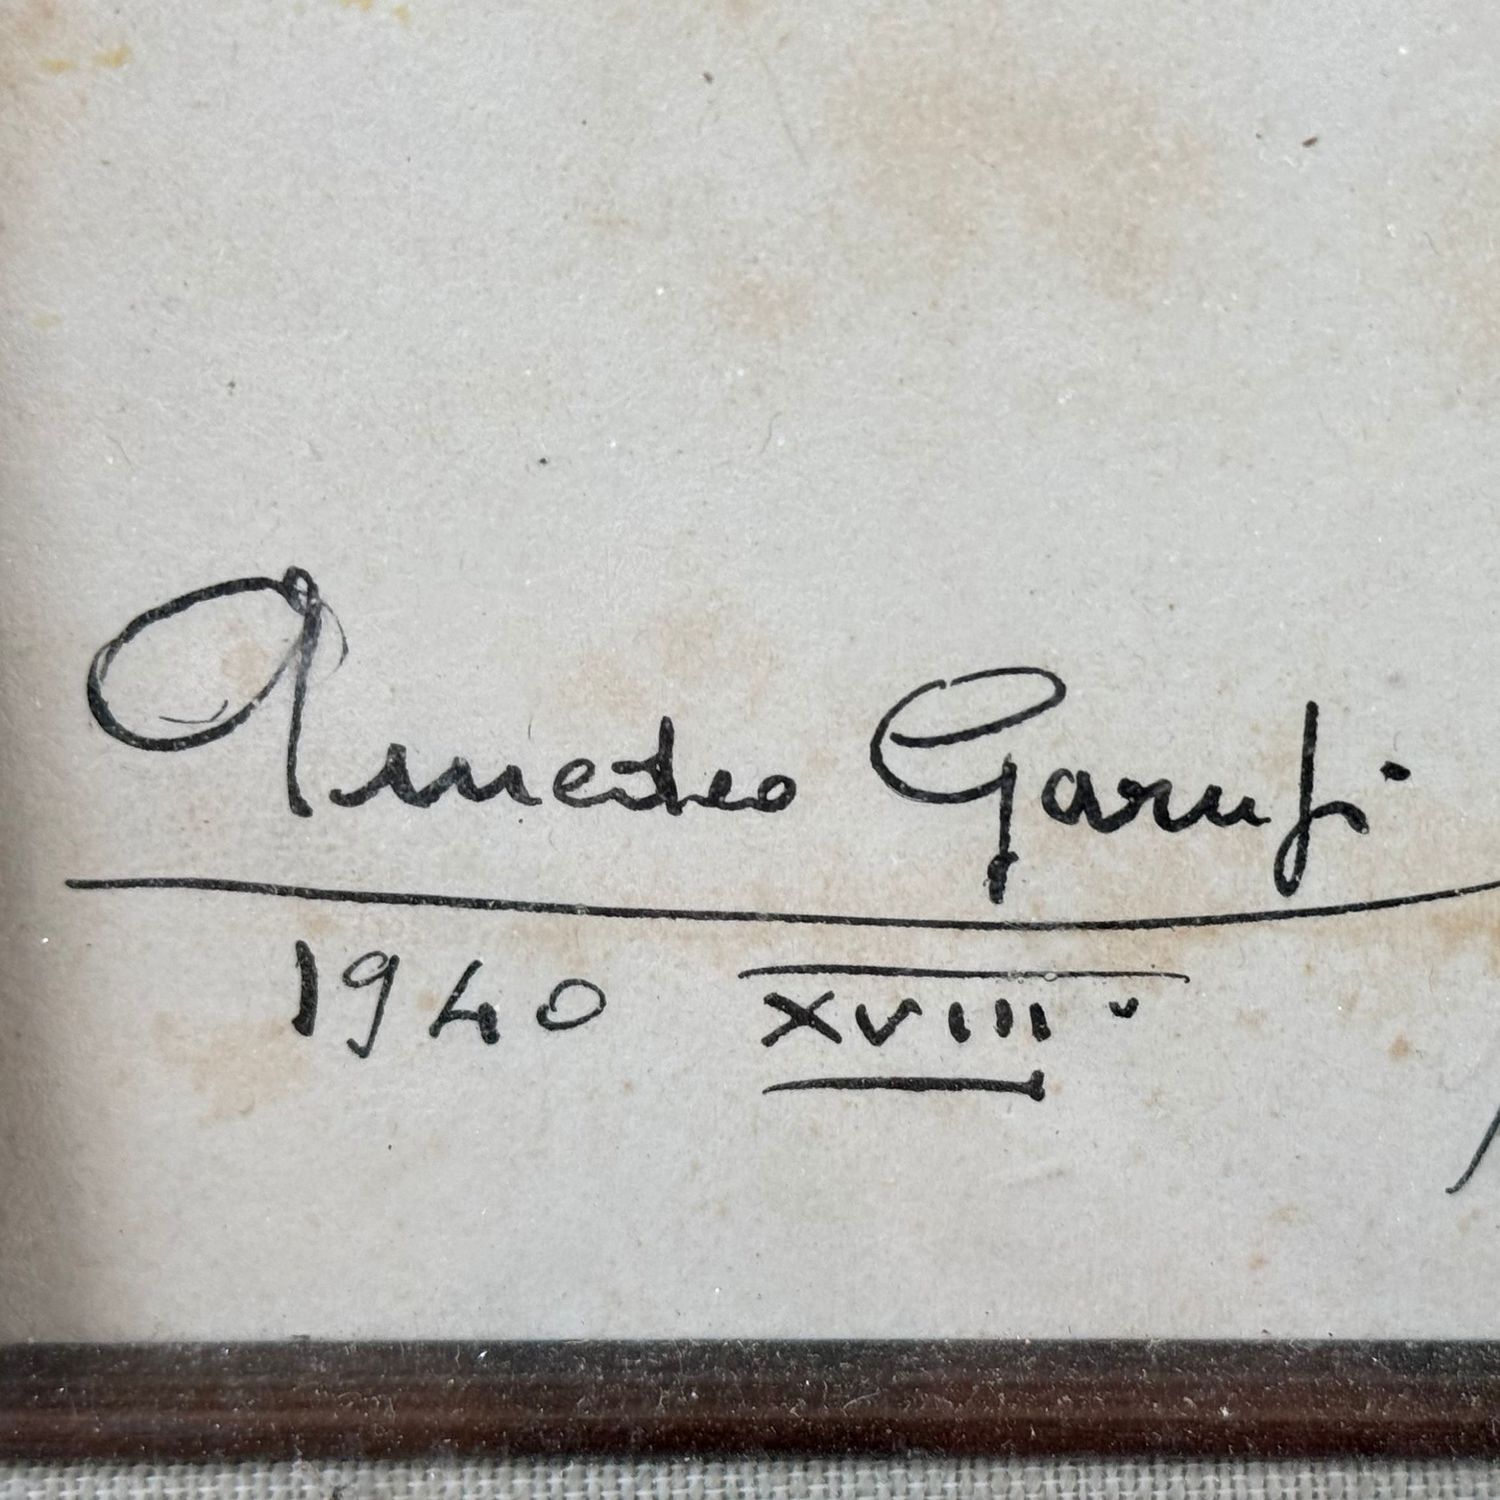 Amedeo Garufi
1940 XVIII.